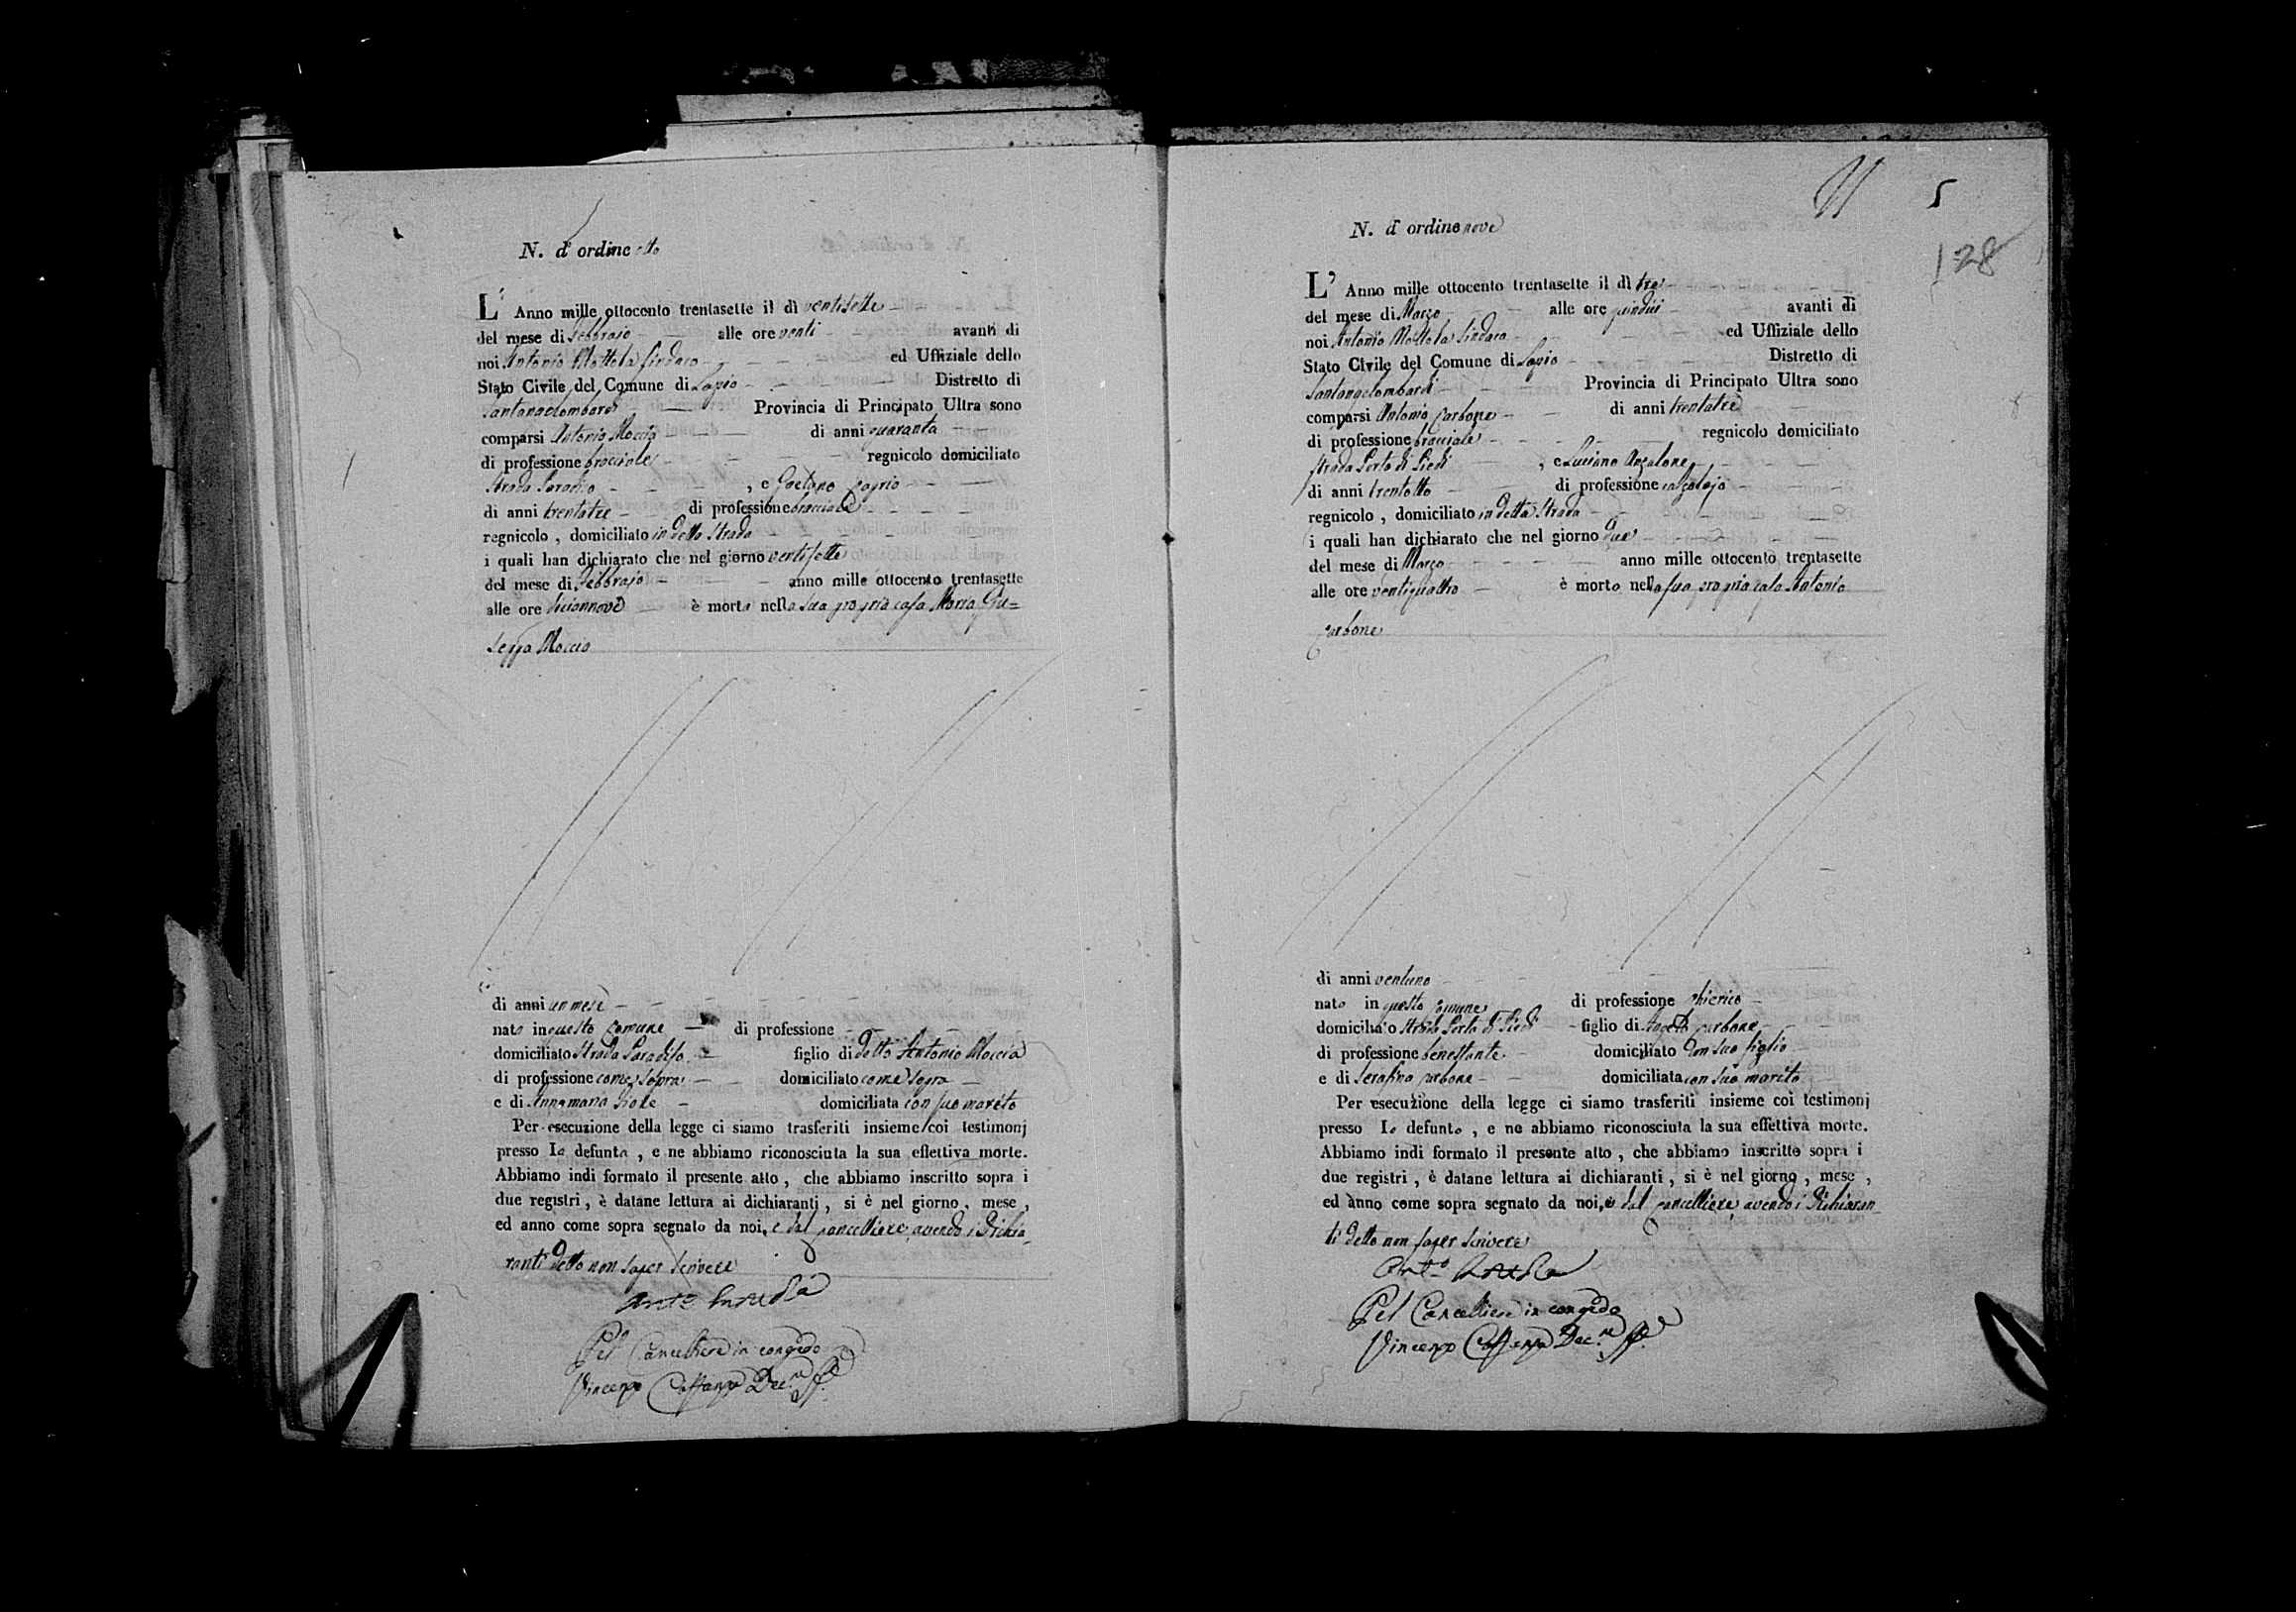 N. d' ordine otto
L' Anno mille ottocento trentasette il dì ventisette
del mese di Febbrajo alle ore venti avanti di
noi Antonio Mottola Sindaco ed Uffiziale dello
Stato Civile del Comune di Lapio Distretto di
Santangelombardi Provincia di Principato Ultra sono
comparsi Antonio Moccia di anni quaranta
di professione bracciale regnicolo domiciliato
Strada Paradiso , e Gaetano
di anni trentatre di professione bracciale
regnicolo , domiciliato in detta Strada
i quali han dichiarato che nel giorno ventisette
del mese di Febbrajo anno mille ottocento trentasette
alle ore diciannove è morta nella sua propria casa Maria Giu=
seppa Moccia
di anni un mese
nata in questo Comune di professione
domiciliato Strada Paradiso figlio di detto Antonio Moccia
di professione come sopra domiciliato come sopra
e di Annamaria domiciliata con suo marito
Per esecuzione della legge ci siamo trasferiti insieme coi testimonj
presso la defunta , e ne abbiamo riconosciuta la sua effettiva morte.
Abbiamo indi formato il presente atto , che abbiamo inscritto sopra i
due registri , è datane lettura ai dichiaranti , si è nel giorno , mese ,
ed anno come sopra segnato da noi, e dal Cancelliere avendo i Dichia-
ranti detto non saper scrivere
Pel Cancelliere in congedo
Vincenzo
N. d' ordine nove
11 5
128
L' Anno mille ottocento trentasette il dì tre
del mese di Marzo alle ore quindici avanti di
noi Antonio Mottola Sindaco ed Uffiziale dello
Stato Civile del Comune di Lapio Distretto di
Santangelombardi Provincia di Principato Ultra sono
comparsi Antonio Carbone di anni trentatre
di professione bracciale regnicolo domiciliato
Strada Porta di Piedi , e Luciano Anzalone
di anni trentotto di professione calzolajo
regnicolo , domiciliato in detta Strada
i quali han dichiarato che nel giorno due
del mese di Marzo anno mille ottocento trentasette
alle ore ventiquattro è morto nella sua propria casa Antonio
Carbone
di anni ventuno
nato in questo Comune di professione Chierico
domiciliato Strada Porta di Piedi figlio di Carbone
di professione benestante domiciliato con suo figlio
e di Serafina Carbone domiciliata con suo marito
Per esecuzione della legge ci siamo trasferiti insieme coi testimonj
presso lo defunto , e ne abbiamo riconosciuta la sua effettiva morte.
Abbiamo indi formato il presente atto , che abbiamo inscritto sopra i
due registri , è datane lettura ai dichiaranti , si è nel giorno , mese ,
ed anno come sopra segnato da noi, e dal Cancelliere avendo i Dichiaran-
ti detto non saper scrivere
Pel Cancelliere in congedo
Vincenzo